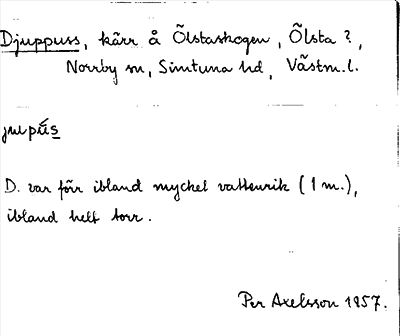 Djuppuss, kärr å Ölstaskogen, Ölsta?,
Norrby sn, Simtuna hd, Västm.l.
jupús
D. var förr ibland mycket vattenrik (1 m.),
ibland helt torr.
Per Axelsson 1957.